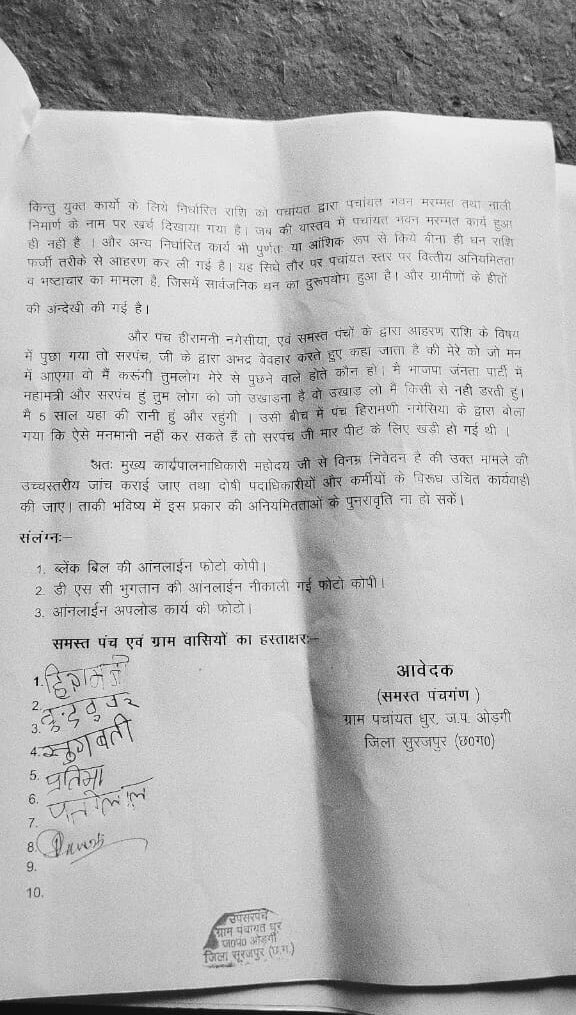 किन्तु युक्त कार्यो के लिये निर्धारित राशि को पचांयत द्वारा पचांयत भवन मरम्मत तथा नाली
निमार्ण के नाम पर खर्च दिखाया गया है। जब की वास्तव में पचांयत भवन मरम्मत कार्य हुआ
ही नही है । और अन्य निर्धारित कार्य भी पुर्णतः या आंशिक रूप से किये बीना ही धन राशि
फर्जी तरीके से आहरण कर ली गई है। यह सिधे तौर पर पंचायत स्तर पर वित्तीय अनियमितता
व भष्टाचार का मामला है, जिसमें सार्वजनिक धन का दुरूपयोग हुआ है। और ग्रामीणों के हीतों
की अन्देखी की गई है।
और पंच हीरामनी नगेसीया, एवं समस्त पंचों के द्वारा आहरण राशि के विषय
में पुछा गया तो सरपंच, जी के द्वारा अभद्र वेवहार करते हुए कहा जाता है की मेरे को जो मन
में आएगा वो मैं करूंगी तुमलोग मेरे से पुछने वाले होते कौन हो। मै भाजपा जंनता पार्टी में
महामत्री और सरपंच हुं तुम लोग को जो उखाडना है वो उखाड लो मैं किसी से नही डरती हुं।
मै 5 साल यहा की रानी हुं और रहुगी । उसी बीच में पंच हिरामणी नगेसिया के द्वारा बोला
गया कि ऐसे मनमानी नहीं कर सकते हैं तो सरपंच जी मार पीट के लिए खडी हो गई थी ।
अतः मुख्य कार्यपालनाधिकारी महोदय जी से विनम्र निवेदन है की उक्त मामले की
उच्चस्तरीय जांच कराई जाए तथा दोषी पदाधिकारीयों और कर्मीयों के विरूध उचित कार्यवाही
की जाए। ताकी भविष्य में इस प्रकार की अनियमितताओं के पुनरावृति ना हो सकें।
संलंग्नः-
1. ब्लेंक बिल की आंनलाईन फोटो कोपी।
2. डी एस सी भुगतान की आंनलाईन नीकाली गई फोटो कोपी।
3. आंनलाईन अपलोड कार्य की फोटो।
समस्त पंच एवं ग्राम वासियों का हस्ताक्षरः-
आवेदक
(समस्त पंचगंण )
ग्राम पंचायत धुर, ज.प. ओड़गी
जिला सुरजपुर (छ०ग०)
1.
2.
3.
4. सुगवती
5. प्रतिमा
6.
7.
8.
9.
10.
उपसरपंच
ग्राम पंचायत धुर
ज०प० ओड़गी
जिला सूरजपुर (छ.ग.)